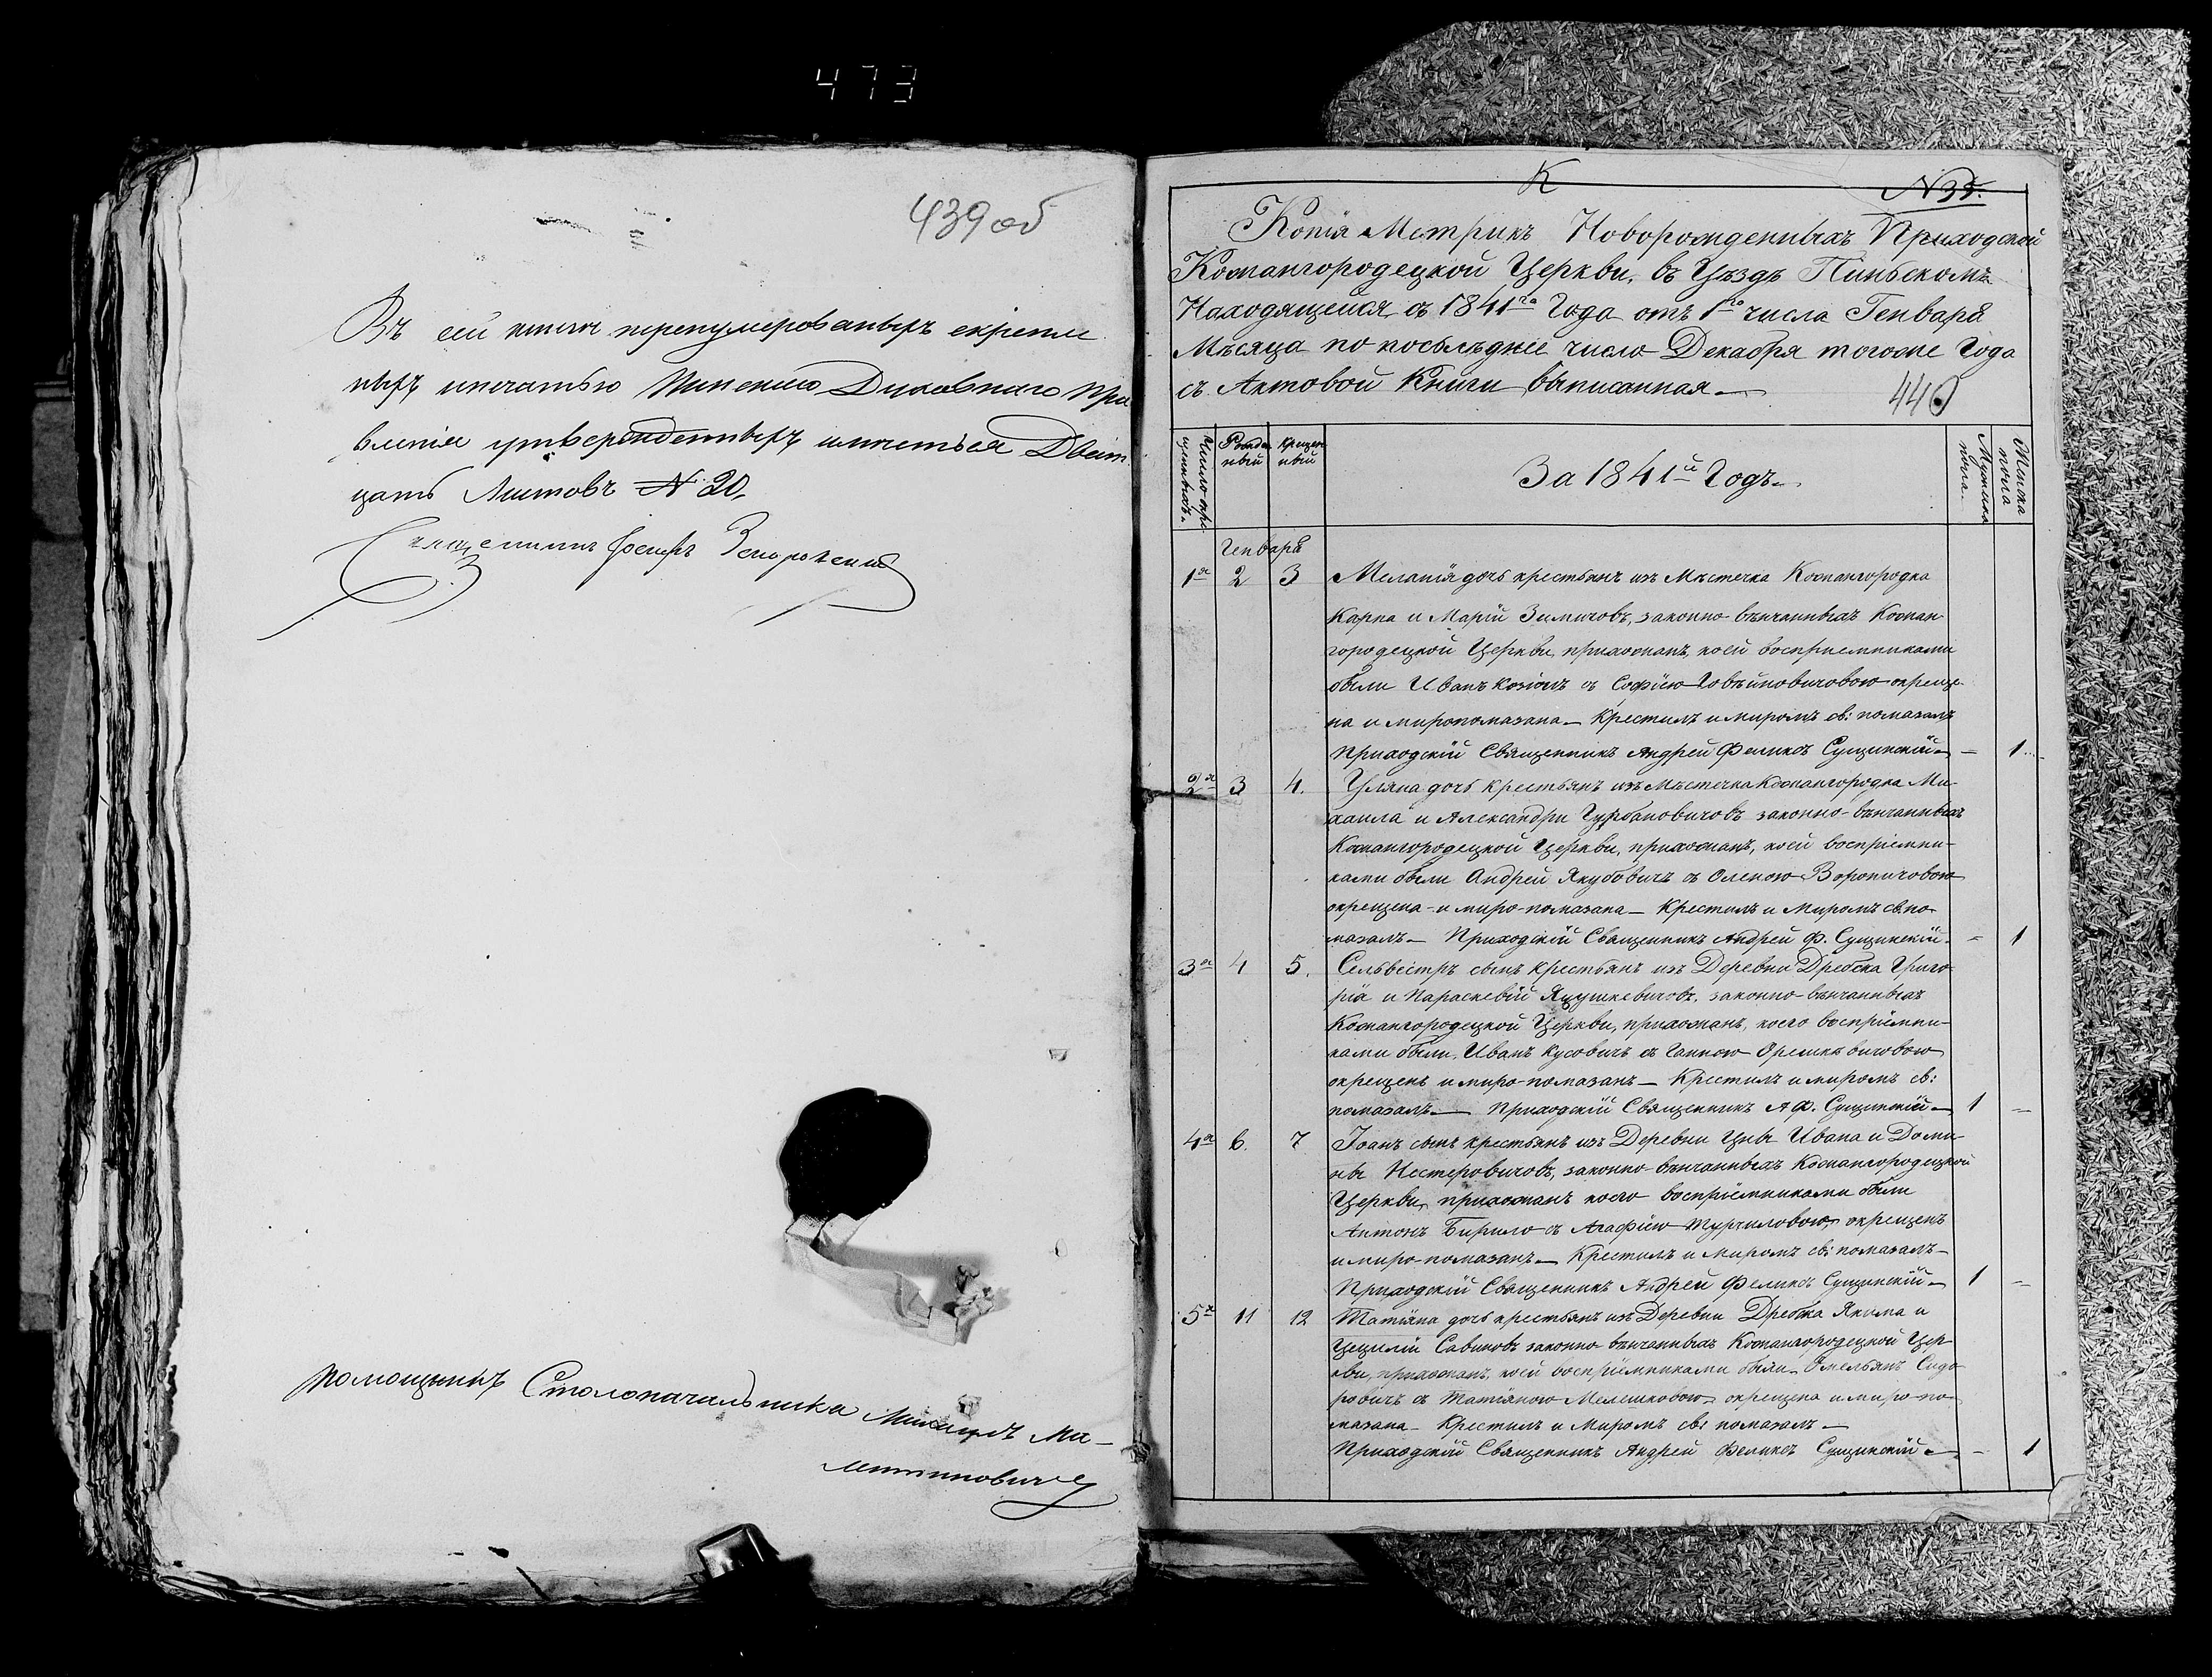 473
439 об
Въ сей книги перенумерованыхъ скрепле
ныхъ печатью Пинскаго Духовнаго Пра
вленія утвержденныхъ имѣеться Дват
цать Листовъ № 20,
Священникъ Іосифъ
Помощникъ Столоначальника Михаилъ Ма-
К
№ 35.
Копія Метрикъ Новорожденныхъ Приходской
Кожангородецкой Церкви, въ Уѣздѣ Пиньскомъ
Находящейся съ 1841го Года отъ 1го числа Генваря
Мѣсяца по послѣднее число Декабря тогоже Года
съ Актовой Книги выписанная
440
Число кре
щенныхъ.
Рожде
ный
Крещен
ный
За 1841й Годъ
Мужеска
пола.
Женска
пола
Генваря
1я 2 3 Меланія дочь крестьянъ изъ Мѣстечка Кожангородка
Карпа и Маріи Зимичовъ, законно-вѣнчанныхъ Кожан
городецкой Церкви, прихожанъ, коей восприемниками
были Иванъ Козіолъ съ Софіею окреще-
на и миропомазана Крестилъ и миромъ св: помазалъ
Приходскій Священникъ Андрей Феликсъ Сущинскій - 1
2я 3 4. Уляна дочь крестьянъ изъ Мѣстечка Кожангородка Ми-
хаила и Александри Гурбановичовъ законно-вѣнчанныхъ
Кожангородецкой Церкви, прихожанъ, коей воспріемни-
ками были Андрей Якубовичъ съ Оленою Вороничовою
окрещена и миро-помазана Крестилъ и Миромъ св. по-
мазалъ Приходскій Священникъ Андрей Ф. Сущинскій. - 1
3я 4 5. Сельвестръ сынъ крестьянъ изъ Деревни Дребска Григо-
рія и Параскевіи Яцушкевичовъ, законно-вѣнчанныхъ
Кожангородецкой Церкви, прихожанъ, коего воспріемни-
ками были, Иванъ Кусовичъ съ Ганною
окрещенъ и миро-помазанъ Крестилъ и миромъ св:
помазалъ Приходскій Священникъ А Ф. Сущинскій 1 -
4я 6. 7 Іоанъ сынъ крестьянъ изъ Деревни Цны Ивана и Доми-
ны Нестеровичовъ, законно-вѣнчанныхъ Кожангородецкой
Церкви, прихожанъ коего воспріемниками были
Антонъ Бирило съ Агафіею Турчиловою, окрещенъ
и миро-помазанъ Крестилъ и Миромъ св: помазалъ
Приходскій Священникъ Андрей Феликсъ Сущинскій 1 -
5я 11 12 Татіяна дочь крестьянъ изъ Деревни Дребска Якима и
Цециліи Савиковъ законно вѣнчанныхъ Кожангородецкой Цер
кви, прихожанъ, коей воспріемниками были Омельянъ Сидо
ровичъ съ Татіяною Мелешковою, окрещена и миро-по-
мазана Крестилъ и Миромъ св: помазалъ
Приходскій Священникъ Андрей Феликсъ Сущинскій - 1